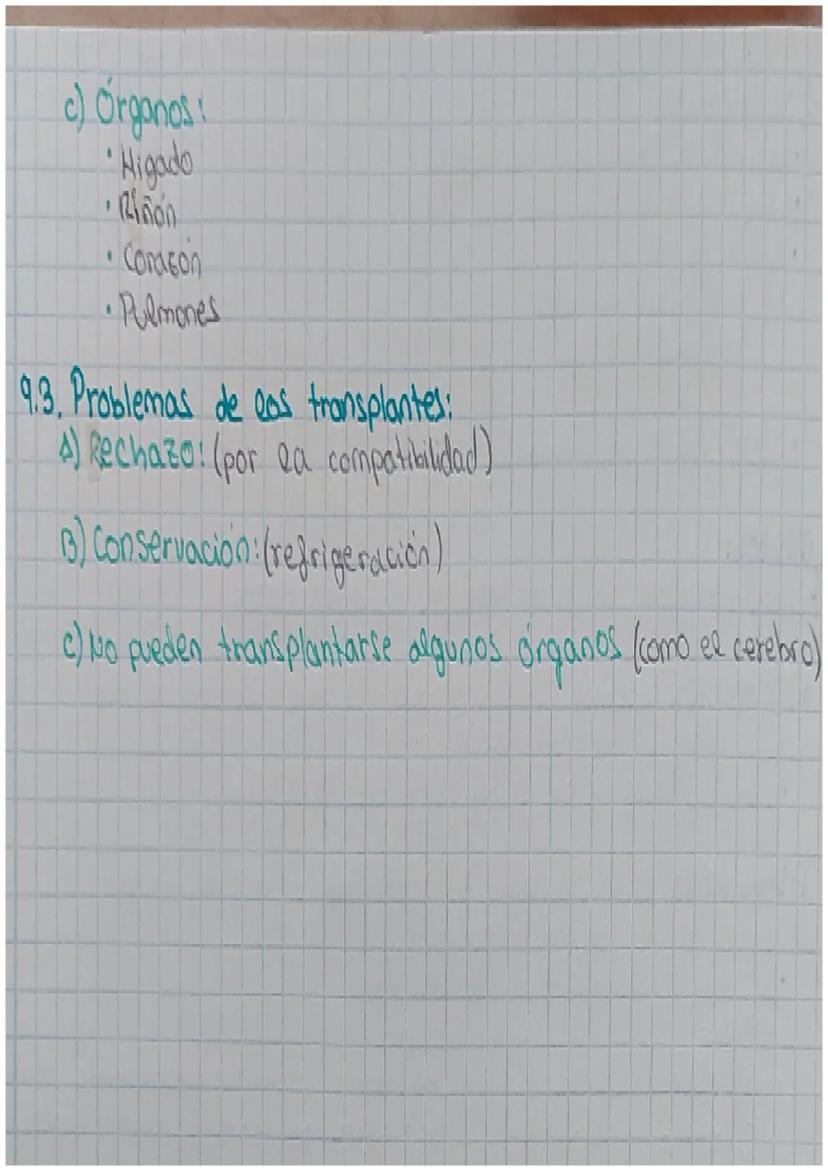 c) Órganos:
· Hígado
· Riñón
· Corazón
· Pulmones
9.3. Problemas de los transplantes:
A) Rechazo: (por la compatibilidad)
B) Conservación: (refrigeración)
C) No pueden transplantarse algunos órganos (como el cerebro)